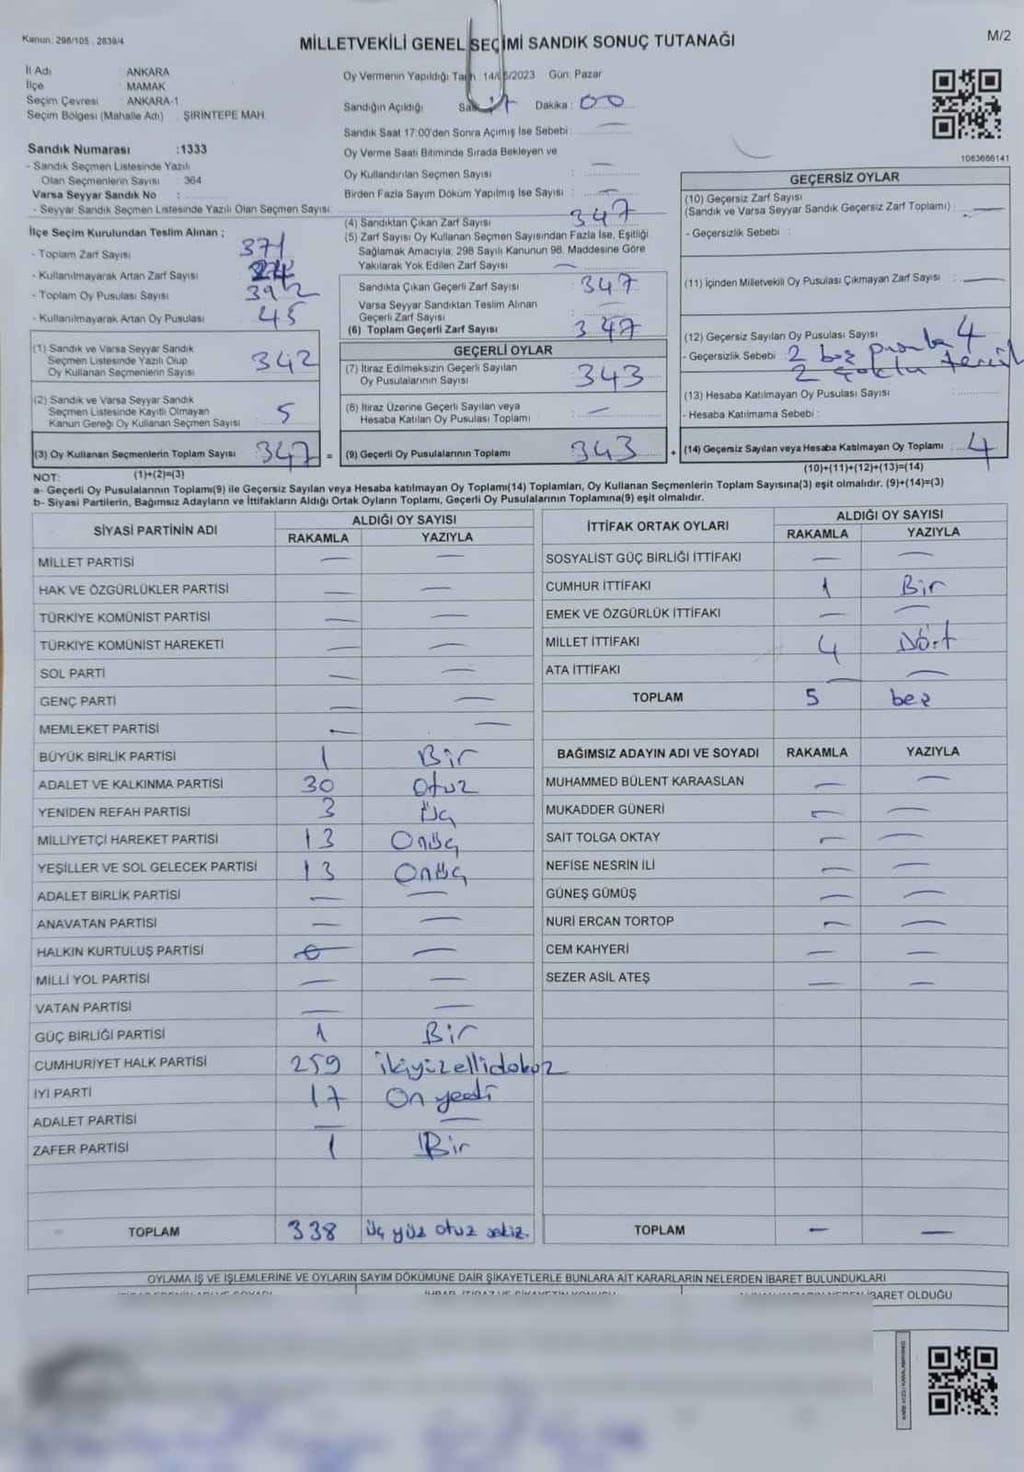 Kanun: 298/105 , 2839/4
MİLLETVEKİLİ GENEL SEÇİMİ SANDIK SONUÇ TUTANAĞI
M/2
İl Adı : ANKARA
İlçe : MAMAK
Seçim Çevresi : ANKARA-1
Seçim Bölgesi (Mahalle Adı) : ŞİRİNTEPE MAH.
Sandık Numarası :1333
- Sandık Seçmen Listesinde Yazılı
Olan Seçmenlerin Sayısı : 364
Varsa Seyyar Sandık No :
- Seyyar Sandık Seçmen Listesinde Yazılı Olan Seçmen Sayısı:
İlçe Seçim Kurulundan Teslim Alınan ;
- Toplam Zarf Sayısı 371
- Kullanılmayarak Artan Zarf Sayısı 24
- Toplam Oy Pusulası Sayısı 392
- Kullanılmayarak Artan Oy Pusulası 45
(1) Sandık ve Varsa Seyyar Sandık
Seçmen Listesinde Yazılı Olup
Oy Kullanan Seçmenlerin Sayısı 342
(2) Sandık ve Varsa Seyyar Sandık
Seçmen Listesinde Kayıtlı Olmayan
Kanun Gereği Oy Kullanan Seçmen Sayısı 5
(3) Oy Kullanan Seçmenlerin Toplam Sayısı 347 =
(1)+(2)=(3)
Oy Vermenin Yapıldığı Tarih 14/05/2023 Gün: Pazar
Sandığın Açıldığı Saat 17 Dakika : 00
Sandık Saat 17:00'den Sonra Açımış İse Sebebi : —
Oy Verme Saati Bitiminde Sırada Bekleyen ve
Oy Kullandırılan Seçmen Sayısı : —
Birden Fazla Sayım Döküm Yapılmış İse Sayısı : —
(4) Sandıktan Çıkan Zarf Sayısı : 347
(5) Zarf Sayısı Oy Kullanan Seçmen Sayısından Fazla İse, Eşitliği
Sağlamak Amacıyla, 298 Sayılı Kanunun 98. Maddesine Göre
Yakılarak Yok Edilen Zarf Sayısı —
Sandıkta Çıkan Geçerli Zarf Sayısı : 347
Varsa Seyyar Sandıktan Teslim Alınan
Geçerli Zarf Sayısı : —
(6) Toplam Geçerli Zarf Sayısı : 347
GEÇERLİ OYLAR
(7) İtiraz Edilmeksizin Geçerli Sayılan
Oy Pusulalarının Sayısı 343
(8) İtiraz Üzerine Geçerli Sayılan veya
Hesaba Katılan Oy Pusulası Toplamı —
(9) Geçerli Oy Pusulalarının Toplamı 343 +
1083666141
GEÇERSİZ OYLAR
(10) Geçersiz Zarf Sayısı
(Sandık ve Varsa Seyyar Sandık Geçersiz Zarf Toplamı) : —
- Geçersizlik Sebebi :
(11) İçinden Milletvekili Oy Pusulası Çıkmayan Zarf Sayısı : —
(12) Geçersiz Sayılan Oy Pusulası Sayısı : 4
- Geçersizlik Sebebi 2 boş pusula
2 çoklu tercih
(13) Hesaba Katılmayan Oy Pusulası Sayısı :
- Hesaba Katılmama Sebebi :
(14) Geçersiz Sayılan veya Hesaba Katılmayan Oy Toplamı : 4
(10)+(11)+(12)+(13)=(14)
NOT:
a- Geçerli Oy Pusulalarının Toplamı(9) ile Geçersiz Sayılan veya Hesaba katılmayan Oy Toplamı(14) Toplamları, Oy Kullanan Seçmenlerin Toplam Sayısına(3) eşit olmalıdır. (9)+(14)=(3)
b- Siyasi Partilerin, Bağımsız Adayların ve İttifakların Aldığı Ortak Oyların Toplamı, Geçerli Oy Pusulalarının Toplamına(9) eşit olmalıdır.
SİYASİ PARTİNİN ADI ALDIĞI OY SAYISI
RAKAMLA YAZIYLA
MİLLET PARTİSİ — —
HAK VE ÖZGÜRLÜKLER PARTİSİ — —
TÜRKİYE KOMÜNİST PARTİSİ — —
TÜRKİYE KOMÜNİST HAREKETİ — —
SOL PARTİ — —
GENÇ PARTİ — —
MEMLEKET PARTİSİ — —
BÜYÜK BİRLİK PARTİSİ 1 Bir
ADALET VE KALKINMA PARTİSİ 30 Otuz
YENİDEN REFAH PARTİSİ 3 Üç
MİLLİYETÇİ HAREKET PARTİSİ 13 Onüç
YEŞİLLER VE SOL GELECEK PARTİSİ 13 Onüç
ADALET BİRLİK PARTİSİ — —
ANAVATAN PARTİSİ — —
HALKIN KURTULUŞ PARTİSİ — —
MİLLİ YOL PARTİSİ — —
VATAN PARTİSİ — —
GÜÇ BİRLİĞİ PARTİSİ 1 Bir
CUMHURİYET HALK PARTİSİ 259 ikiyüzellidokuz
İYİ PARTİ 17 On yedi
ADALET PARTİSİ — —
ZAFER PARTİSİ 1 Bir
TOPLAM 338 üç yüz otuz sekiz.
İTTİFAK ORTAK OYLARI ALDIĞI OY SAYISI
RAKAMLA YAZIYLA
SOSYALİST GÜÇ BİRLİĞİ İTTİFAKI — —
CUMHUR İTTİFAKI 1 Bir
EMEK VE ÖZGÜRLÜK İTTİFAKI — —
MİLLET İTTİFAKI 4 Dört
ATA İTTİFAKI — —
TOPLAM 5 beş
BAĞIMSIZ ADAYIN ADI VE SOYADI RAKAMLA YAZIYLA
MUHAMMED BÜLENT KARAASLAN — —
MUKADDER GÜNERİ — —
SAİT TOLGA OKTAY — —
NEFİSE NESRİN İLİ — —
GÜNEŞ GÜMÜŞ — —
NURİ ERCAN TORTOP — —
CEM KAHYERİ — —
SEZER ASİL ATEŞ — —
TOPLAM — —
OYLAMA İŞ VE İŞLEMLERİNE VE OYLARIN SAYIM DÖKÜMÜNE DAİR ŞİKAYETLERLE BUNLARA AİT KARARLARIN NELERDEN İBARET BULUNDUKLARI
İBARET OLDUĞU